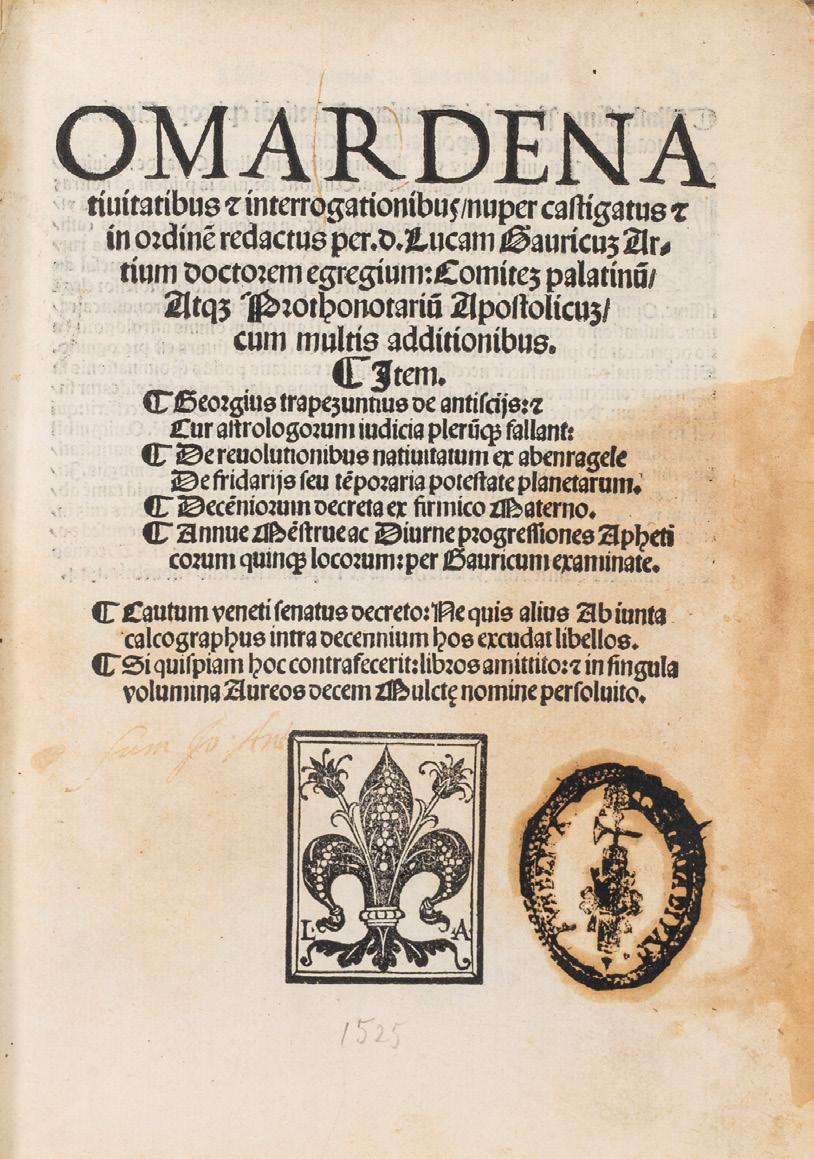 OMAR DE NA
tiuitatibus ⁊ interrogationibus/nuper castigatus ⁊
in ordinē redactus per.d.Lucam Gauricuꝫ Ar⸗
tium doctorem egregium:Comiteꝫ palatinū/
Atqꝫ Prothonotariū Apostolicuꝫ/
cum multis additionibus.
¶ Item.
¶ Georgius trapezuntius de antiscijs:⁊
Cur astrologorum iudicia plerūqꝫ fallant:
¶ De reuolutionibus natiuitatum ex abenragele
De fridarijs seu tēporaria potestate planetarum.
¶ Decēniorum decreta ex firmico Materno.
¶ Annue Mēstrue ac Diurne progressiones Apheti
corum quinqꝫ locorum:per Gauricum examinate.
¶ Cautum veneti senatus decreto:Ne quis alius Ab iunta
calcographus intra decennium hos excudat libellos.
¶ Si quispiam hoc contrafecerit:libros amittito:⁊ in singula
volumina Aureos decem Mulctę nomine persoluito.
L A
1525